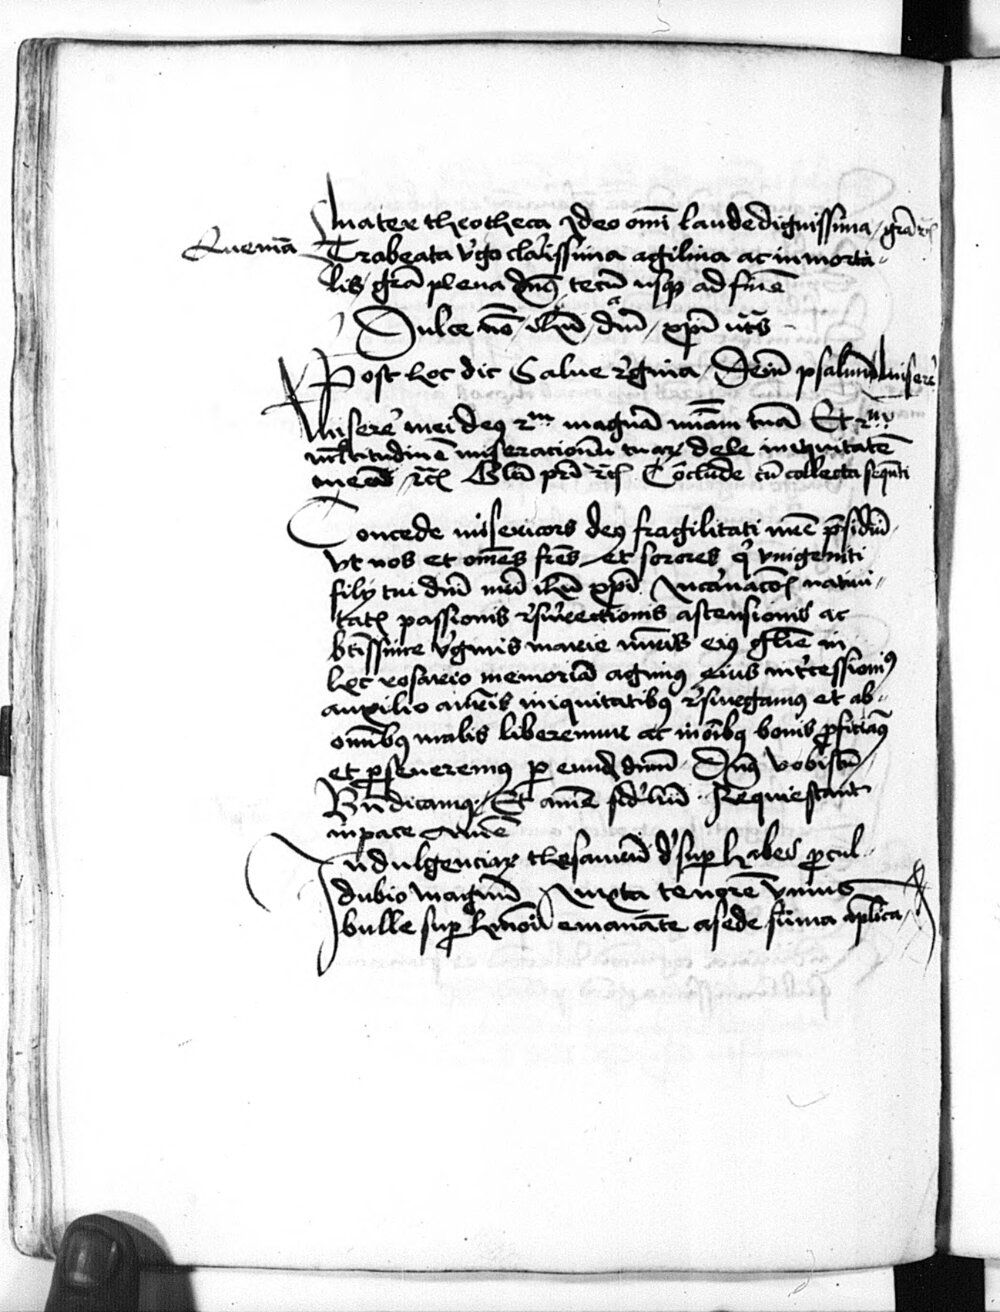 mater theotheca Ideo omni laude dignissima / gra rcꝭ
Auemaa Trabeata v'go clarissima agilima ac inmorta-
lis / gra plena dns tecu usqꝫ ad fine
Dulce no / ihu / dni / xpi
Post hoc dic Salue r'gina / Dein psalmu Misere'
Misere' mei deꝰ rm magna miam tua Et rm
multitudine miseracionu tuaꝝ dele iniquitate
mea / rcꝭ Glia pri rcꝭ Coclude cu collecta sequti
Concede misericors deꝰ fragilitati nre presidiu
vt nos et omes fres et sorores q' vnigeniti
filij tui dni nri ihu xpi Incarnacoꝭ natiui-
tatꝭ passionis r'surrectionis ascensionis ac
btissime v'ginis marie mris eiꝰ glie in
hoc rosario memoria agimꝰ eius int'cessionis
auxilio a nris iniquitatibꝰ r'surgamꝰ et ab
omibꝰ malis liberemur ac in oibꝰ bonis ꝓficiaꝰ
et ꝑseueremꝰ ꝑ eund dnm Dns vobiscu
Bndicamꝰ Et ame Requiescant
in pace Ame
Indulgenciaꝝ thesauru d'suꝑ habes ꝓcul
dubio magnu Iuxta tenore vnius
bulle suꝑ emanate a sede suma aplica